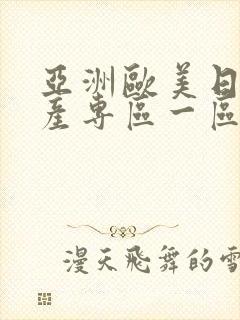 亞洲歐美日
產專區一區
漫天飛舞的雪